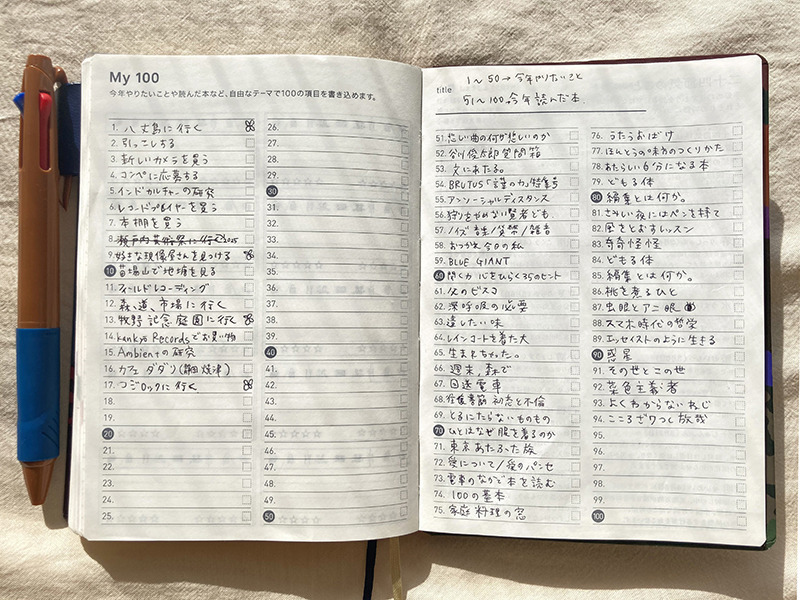 My 100
今年やりたいことや読んだ本など、自由なテーマで100の項目を書き込めます。
1. 八丈島に行く
2. 引っこしする
3. 新しいカメラを買う
4. コンペに応募する
5. インドカルチャーの研究
6. レコードプレイヤーを買う
7. 本棚を買う
8. 瀬戸内芸術祭に行く 2025
9. 好きな現像屋さんを見つける
10 苗場山で地塘を見る
11. フィールドレコーディング
12. 森、道、市場に行く
13. 牧野記念庭園に行く
14. kankyo Recordsでお買い物
15. Ambientの研究
16. カフェ ダダリ(静岡 焼津)
17. コジロックに行く
18.
19.
20
21.
22.
23.
24.
25.
26.
27.
28.
29.
30
31.
32.
33.
34.
35.
36.
37.
38.
39.
40
41.
42.
43.
44.
45.
46.
47.
48.
49.
50
title
1〜50→今年やりたいこと
51〜100.今年読んだ本.
51. 悲しい曲の何が悲しいのか
52. 谷川俊太郎質問箱
53. 文にあたる。
54. BRUTUS「謹の力」特集号
55. アンソーシャルディスタンス
56. 狩りをやめない賢者ども.
57. ノイズ 音楽/貨幣/雑音
58. おつかれ、今日の私
59. BLUE GIANT
60 聞く力 心をひらく35のヒント
61. 父のビスコ
62. 深呼吸の必要
63. 遠したい味
64. レインコートを着た犬
65. 生まれちゃった。
66. 週末、森で
67. 回送電車
68. 往復書簡 初恋と不倫
69. とるにたらないものもの
70 ひとはなぜ服を着るのか
71. 東京あたふた族
72. 愛について/愛のパンセ
73. 電車のなかで本を読む
74. 100の基本
75. 家庭料理の窓
76. うたうおばけ
77. ほんとうの味方のつくりかた
78. あたらしい自分になる本
79. どもる体
80 編集とは何か。
81. さみしい夜にはペンを持て
82. 風をとおすレッスン
83. 奇奇怪怪
84. どもる体
85. 編集とは何か。
86. 桃を煮るひと
87. 虫眼とアニ眼
88. スマホ時代の哲学
89. エッセイストのように生きる
90 惑星
91. その世とこの世
92. 菜色主義者
93. よくわからないねじ
94. こころざわつく放哉
95.
96.
97.
98.
99.
100